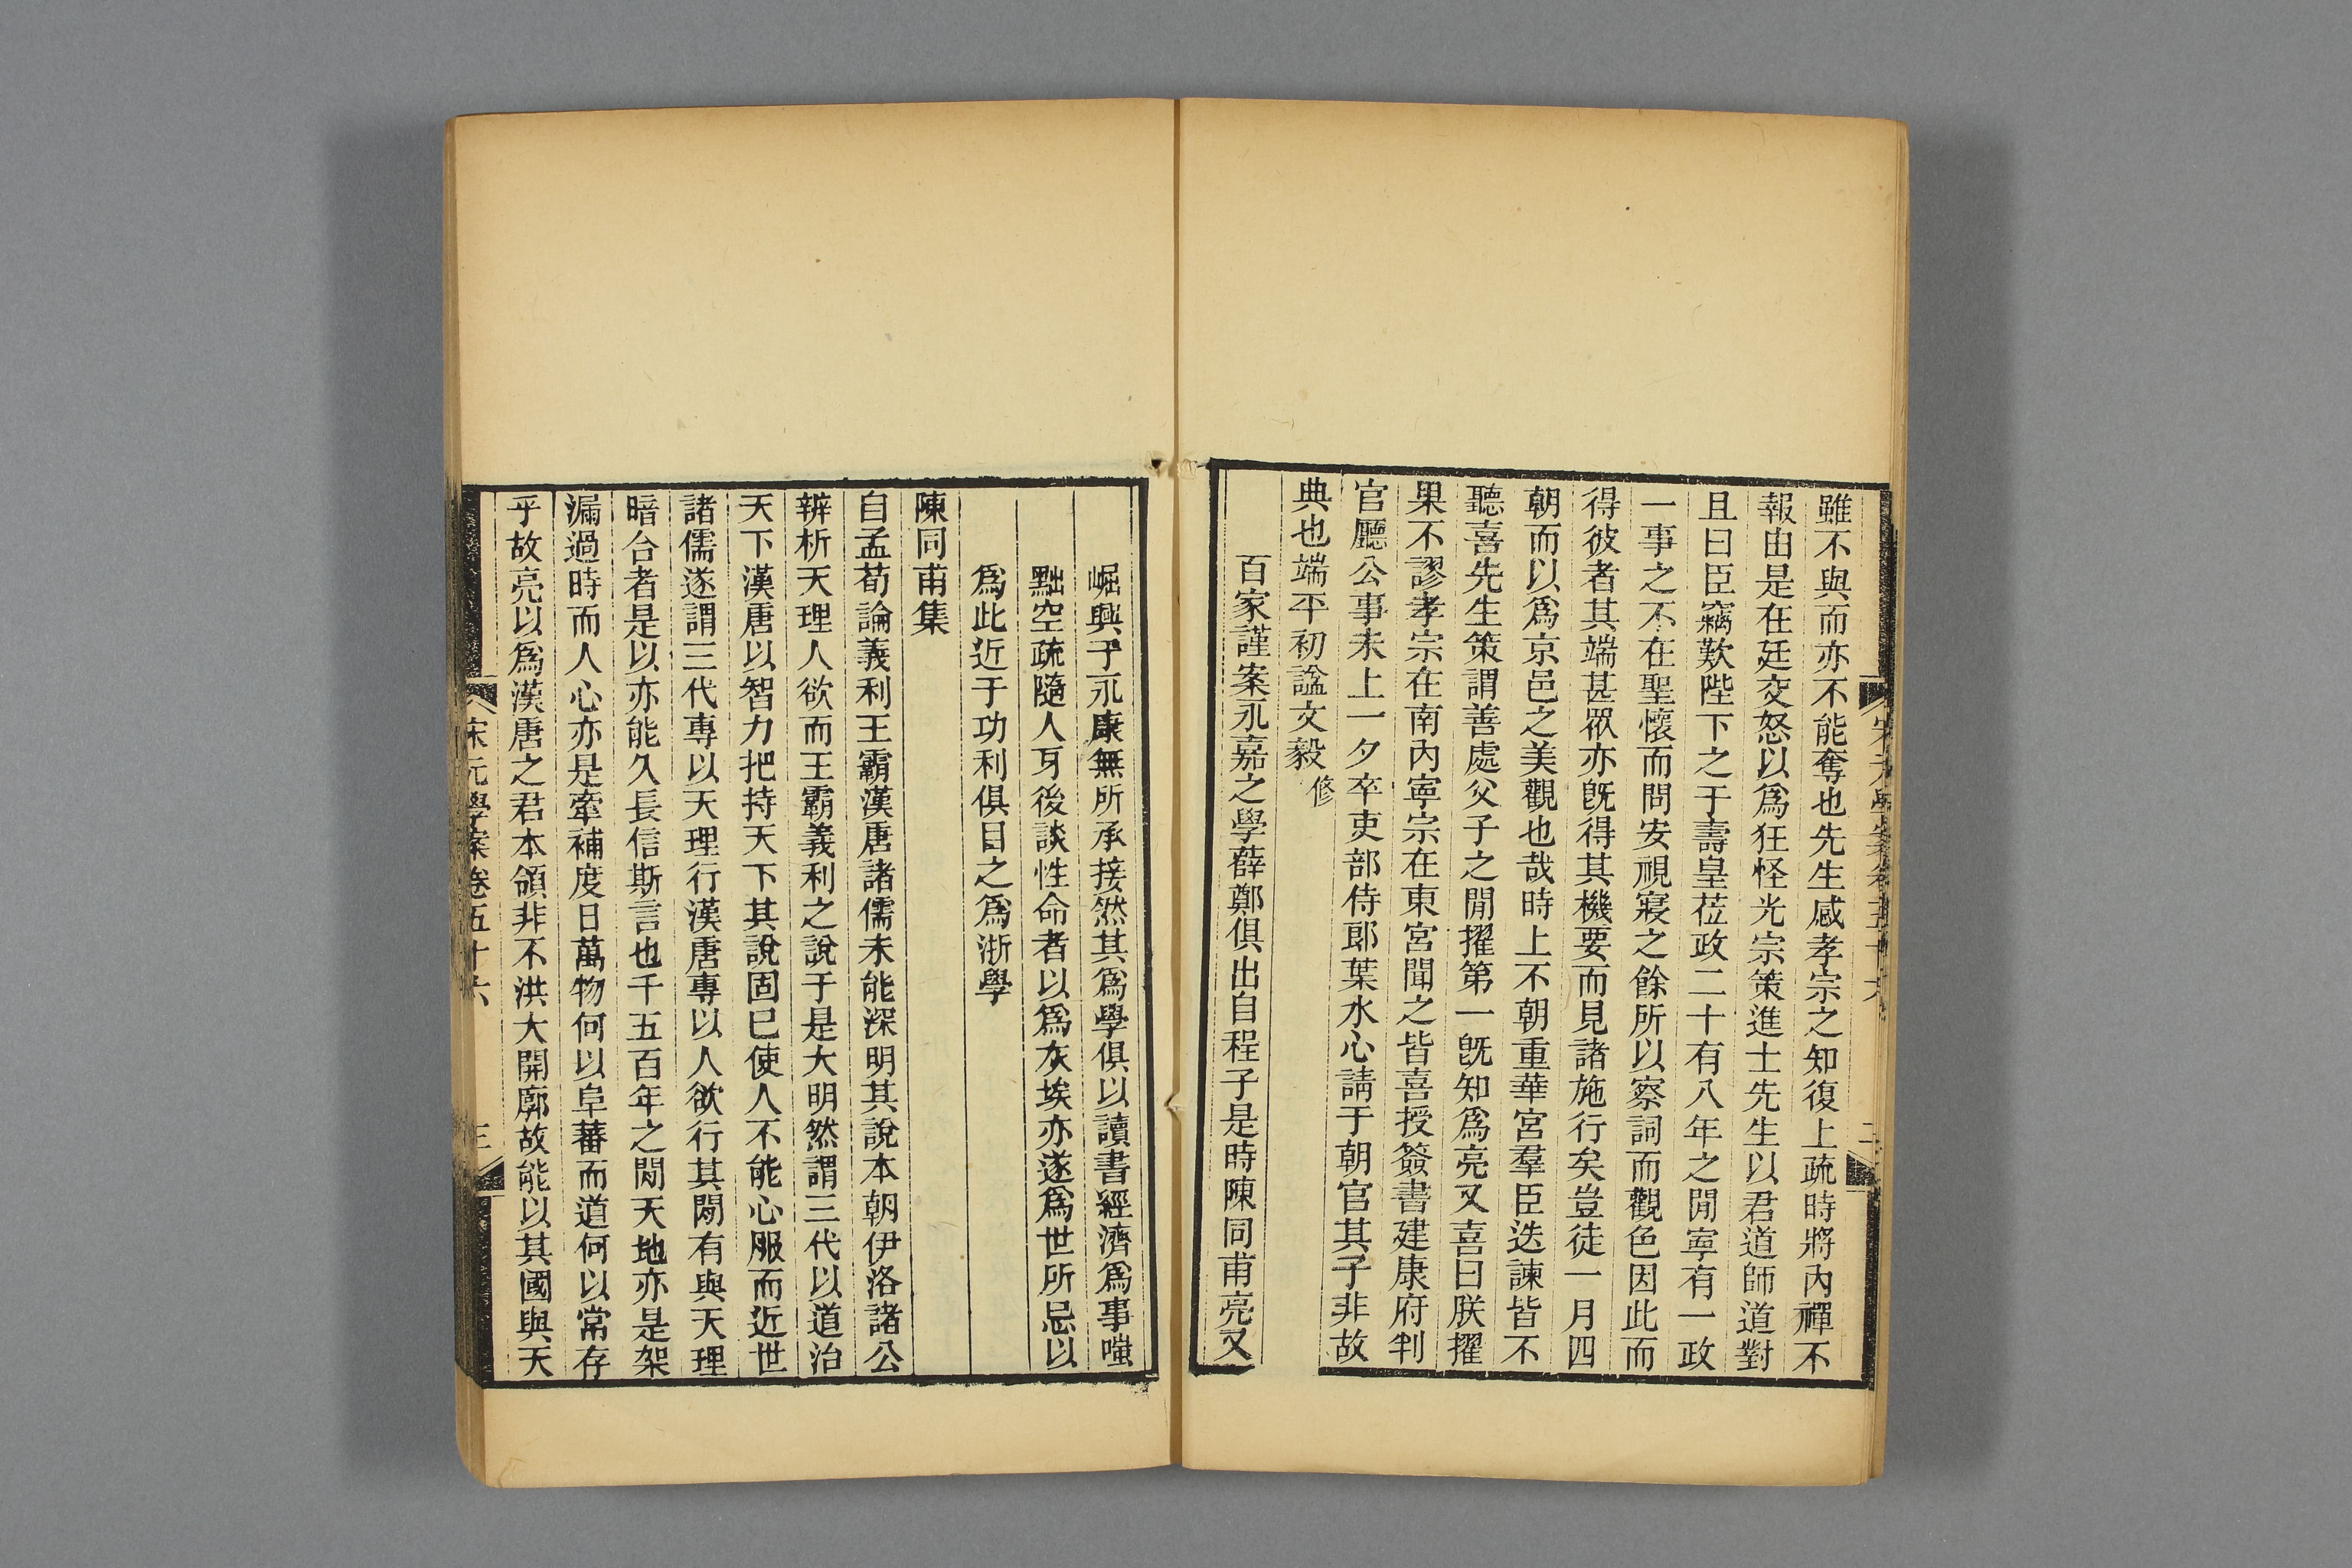 雖不與而亦不能奪也先生感孝宗之知復上疏時將內禪不
報由是在廷交怒以爲狂怪光宗策進士先生以君道師道對
且曰臣竊歎陛下之于壽皇莅政二十有八年之閒寧有一政
一事之不在聖懷而問安視寢之餘所以察詞而觀色因此而
得彼者其端甚眾亦旣得其機要而見諸施行矣豈徒一月四
朝而以爲京邑之美觀也哉時上不朝重華宮羣臣迭諫皆不
聽喜先生策謂善處父子之閒擢第一旣知爲亮又喜曰朕擢
果不謬孝宗在南內寧宗在東宮聞之皆喜授簽書建康府判
官廳公事未上一夕卒吏部侍郎葉水心請于朝官其子非故
典也端平初諡文毅修
百家謹案永嘉之學薛鄭俱出自程子是時陳同甫亮又
崛興于永康無所承接然其爲學俱以讀書經濟爲事嗤
黜空疏隨人牙後談性命者以爲灰埃亦遂爲世所忌以
爲此近于功利俱目之爲浙學
陳同甫集
自孟荀論義利王霸漢唐諸儒未能深明其說本朝伊洛諸公
辨析天理人欲而王霸義利之說于是大明然謂三代以道治
天下漢唐以智力把持天下其說固已使人不能心服而近世
諸儒遂謂三代專以天理行漢唐專以人欲行其閒有與天理
暗合者是以亦能久長信斯言也千五百年之閒天地亦是架
漏過時而人心亦是牽補度日萬物何以阜蕃而道何以常存
乎故亮以爲漢唐之君本領非不洪大開廓故能以其國與天
宋元學案卷五十六
三